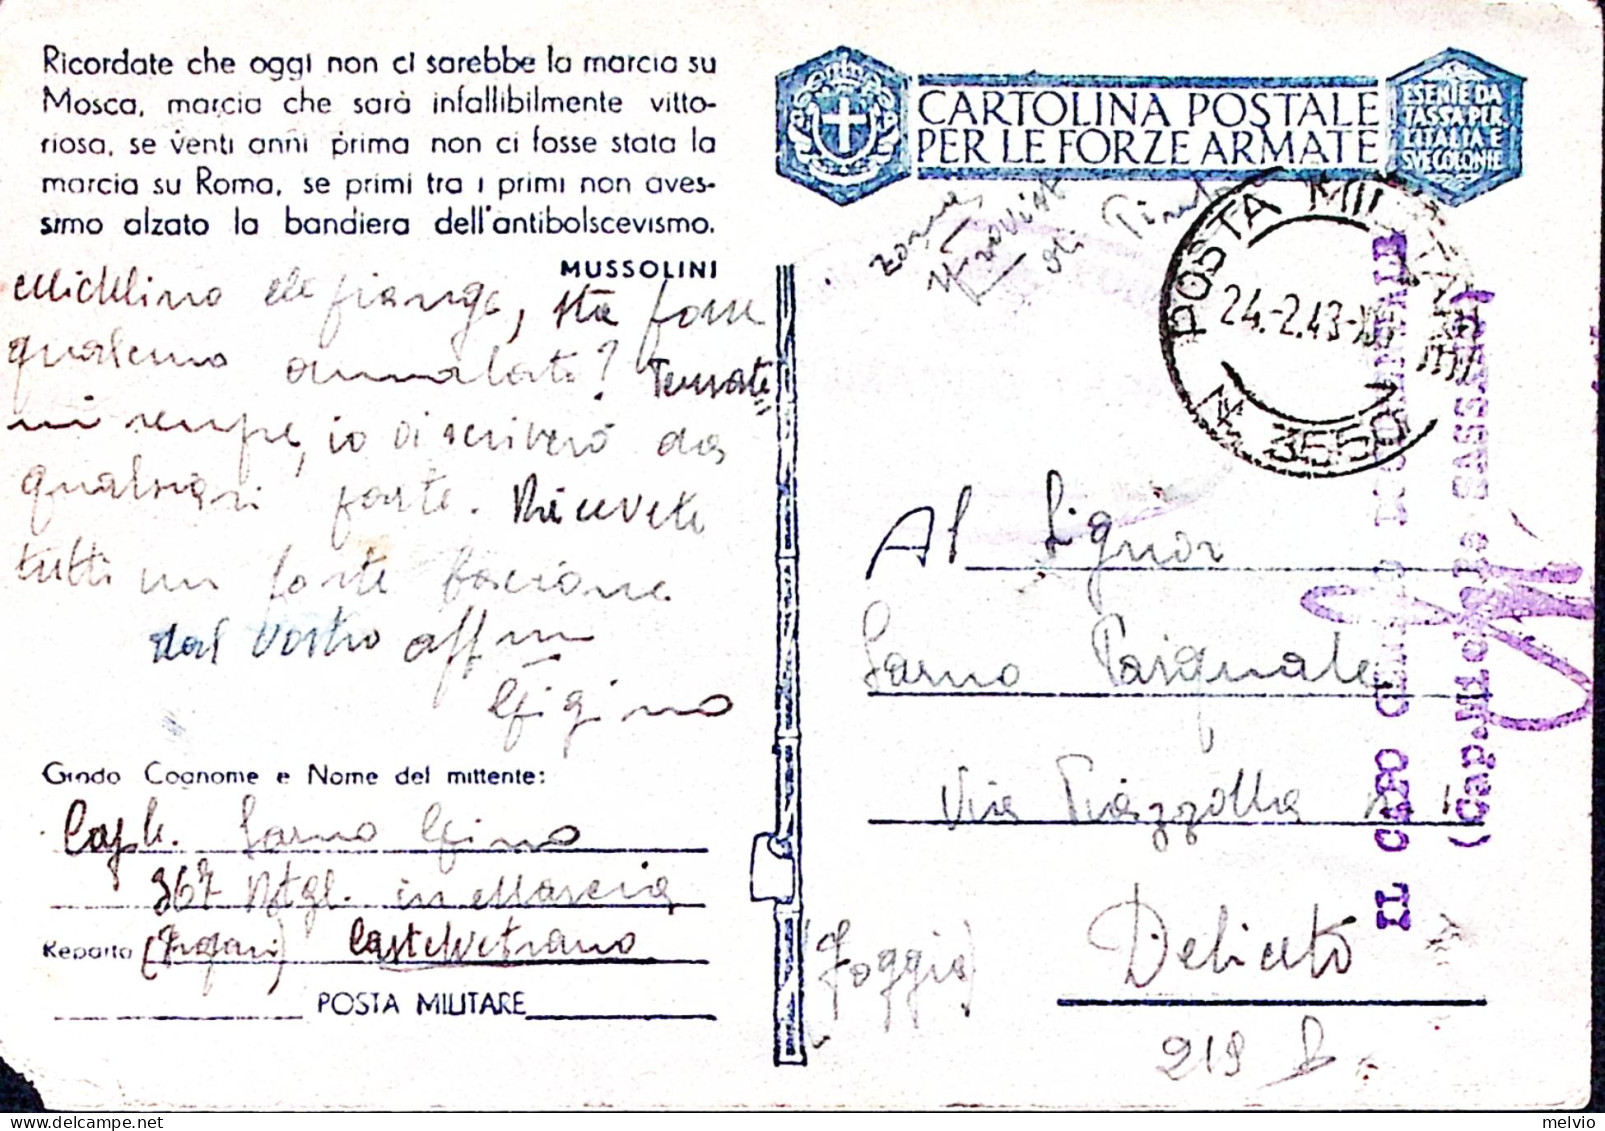 Ricordate che oggi non ci sarebbe la marcia su
Mosca, marcia che sarà infallibilmente vitto-
riosa, se venti anni prima non ci fosse stata la
marcia su Roma, se primi tra i primi non aves-
simo alzato la bandiera dell'antibolscevismo.
MUSSOLINI
che piange, sta forse
qualcuno ammalato?
mi sempre, io vi scriverò da
qualsiasi parte. Ricevete
tutti un forte bacione
dal vostro aff/mo
Gigino
Grado Cognome e Nome del mittente:
Sarno Gino
367 Btgl. in Marcia
Reparto Castelvetrano
POSTA MILITARE
CARTOLINA POSTALE
PER LE FORZE ARMATE
ESENTE DA
TASSA PER
L'ITALIA E
SUE COLONIE
zona
POSTA MILITARE
24.-2.43-XXI
N. 3550
Al Signor
Sarno Pasquale
Via Piazzolla n. 1
Deliceto
(Foggia)
219
IL CAPO